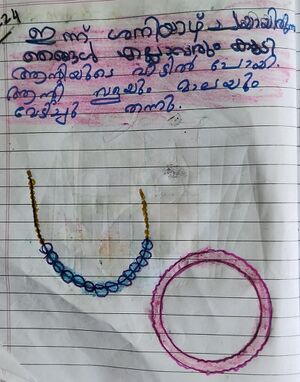 24
ഇന്ന് ശനിയാഴ്ചയായിരുന്നു
ഞങ്ങൾ എല്ലാവരും കൂടി
ആന്റിയുടെ വീട്ടിൽ പോയി.
ആന്റി വളയും മാലയും
വേടിച്ചു തന്നു.